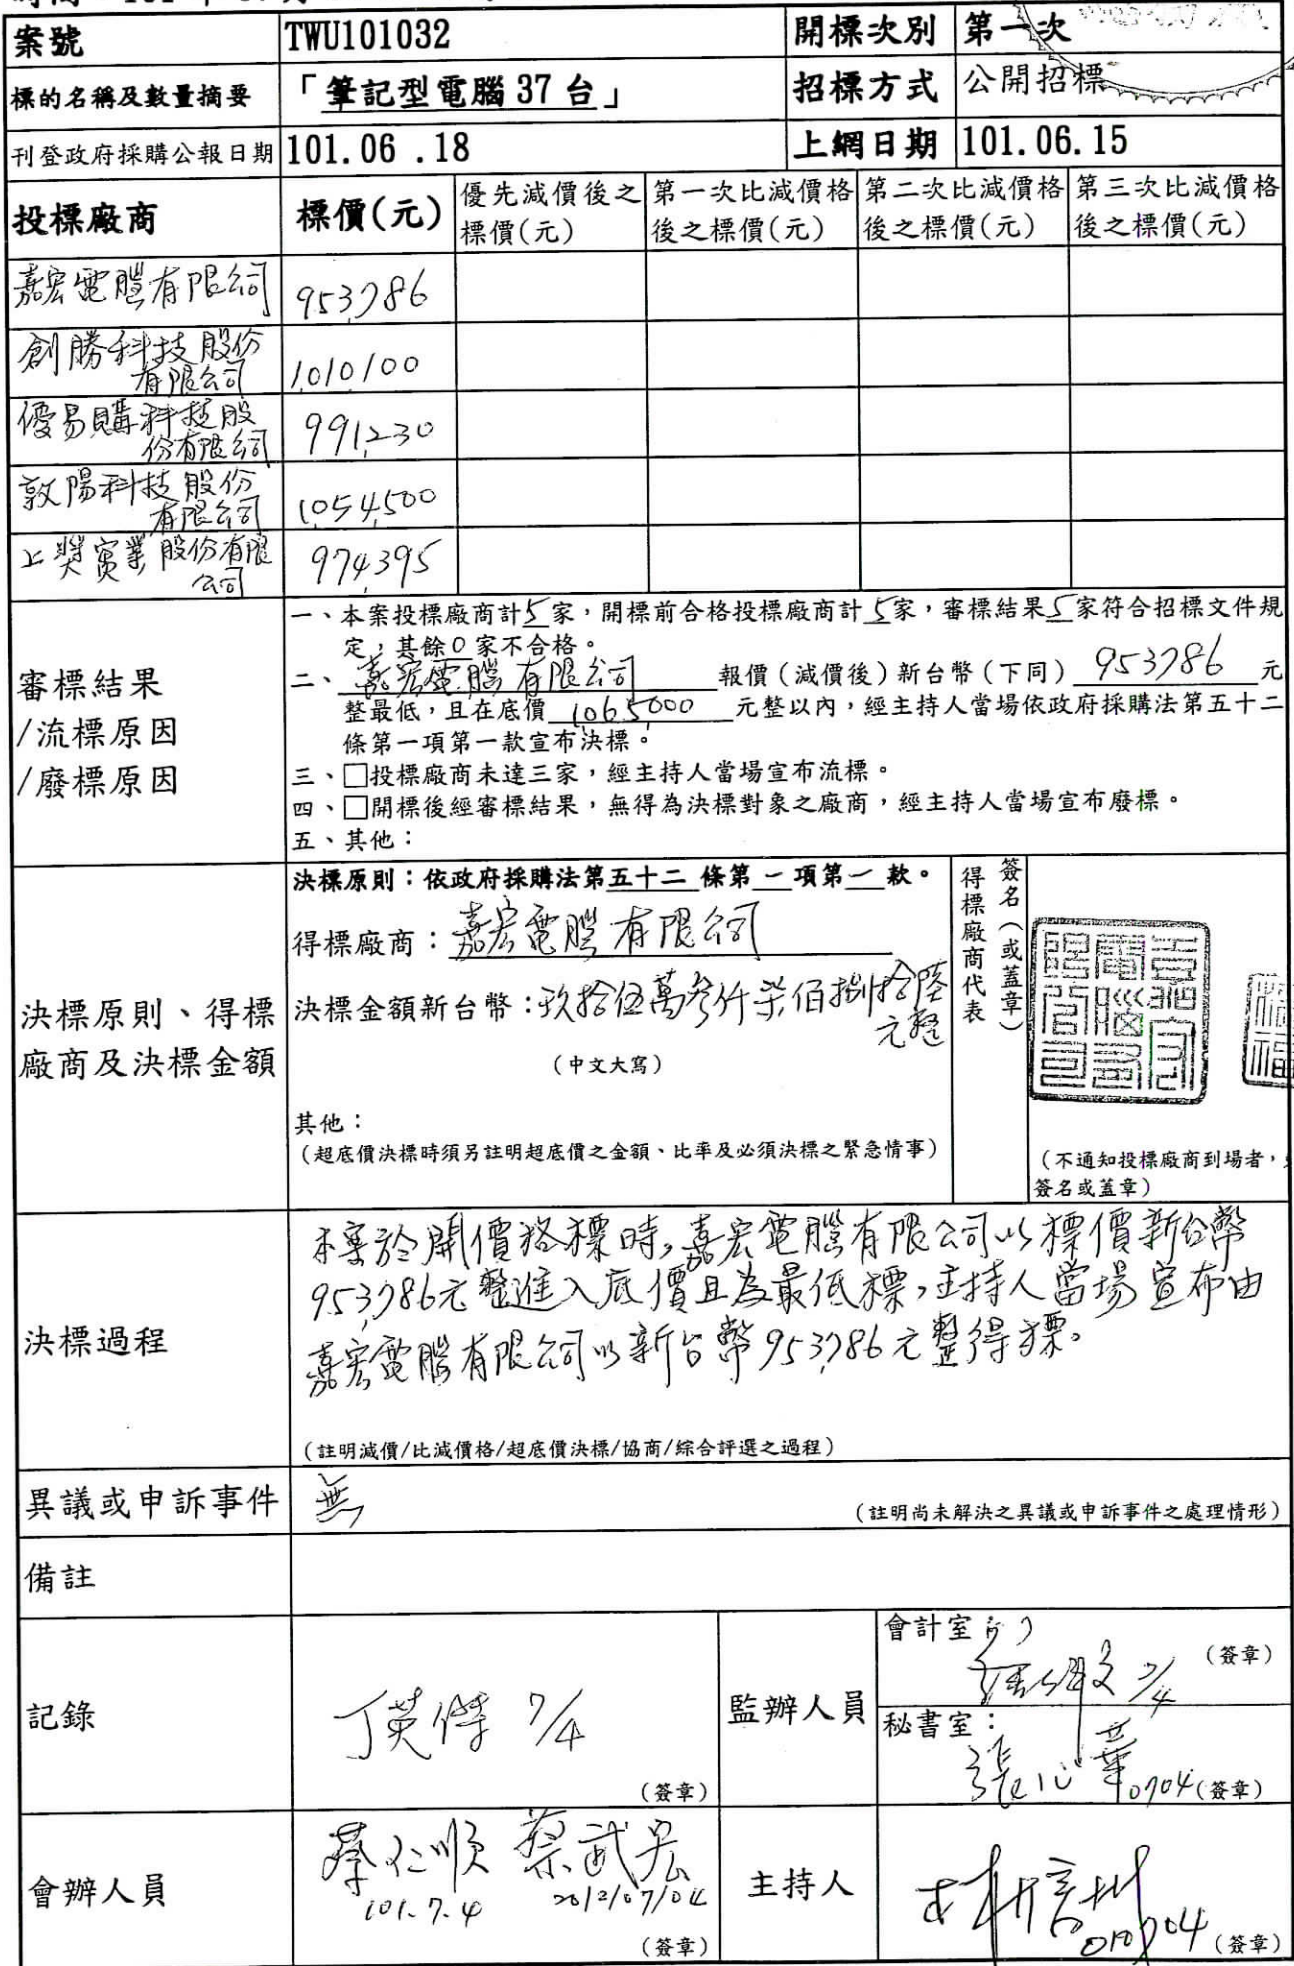 案號 TWU101032 開標次別 第一次
標的名稱及數量摘要 「筆記型電腦 37 台」 招標方式 公開招標
刊登政府採購公報日期 101.06 .18 上網日期 101.06.15
投標廠商 標價(元) 優先減價後之標價(元) 第一次比減價格後之標價(元) 第二次比減價格後之標價(元) 第三次比減價格後之標價(元)
嘉宏電腦有限公司 953,786
創勝科技股份
有限公司 1,010,100
優易購科技股
份有限公司 991,230
敦陽科技股份
有限公司 1,054,500
上奨實業股份有限
公司 974,395
審標結果
/流標原因
/廢標原因
一、本案投標廠商計5家，開標前合格投標廠商計5家，審標結果5家符合招標文件規
定，其餘0家不合格。
二、嘉宏電腦有限公司 報價（減價後）新台幣（下同）953,786 元
整最低，且在底價 1,065,000 元整以內，經主持人當場依政府採購法第五十二
條第一項第一款宣布決標。
三、□投標廠商未達三家，經主持人當場宣布流標。
四、□開標後經審標結果，無得為決標對象之廠商，經主持人當場宣布廢標。
五、其他：
決標原則、得標
廠商及決標金額
決標原則：依政府採購法第五十二 條第 一 項第 一 款。
得標廠商：嘉宏電腦有限公司
決標金額新台幣：玖拾伍萬參仟柒佰捌拾陸
元整
（中文大寫）
其他：
（超底價決標時須另註明超底價之金額、比率及必須決標之緊急情事）
得標廠商代表
簽名（或蓋章）
（不通知投標廠商到場者，
簽名或蓋章）
決標過程
本案於開價格標時，嘉宏電腦有限公司以標價新台幣
953,786元整進入底價且為最低標，主持人當場宣布由
嘉宏電腦有限公司以新台幣953,786元整得標。
（註明減價/比減價格/超底價決標/協商/綜合評選之過程）
異議或申訴事件 無 （註明尚未解決之異議或申訴事件之處理情形）
備註
記錄 丁英傑 7/4 （簽章）
監辦人員
會計室 7/4 （簽章）
秘書室： 張心華 0704 （簽章）
會辦人員 蔡仁順 蔡武宏
101.7.4 2012/07/04
（簽章）
主持人 010704 （簽章）